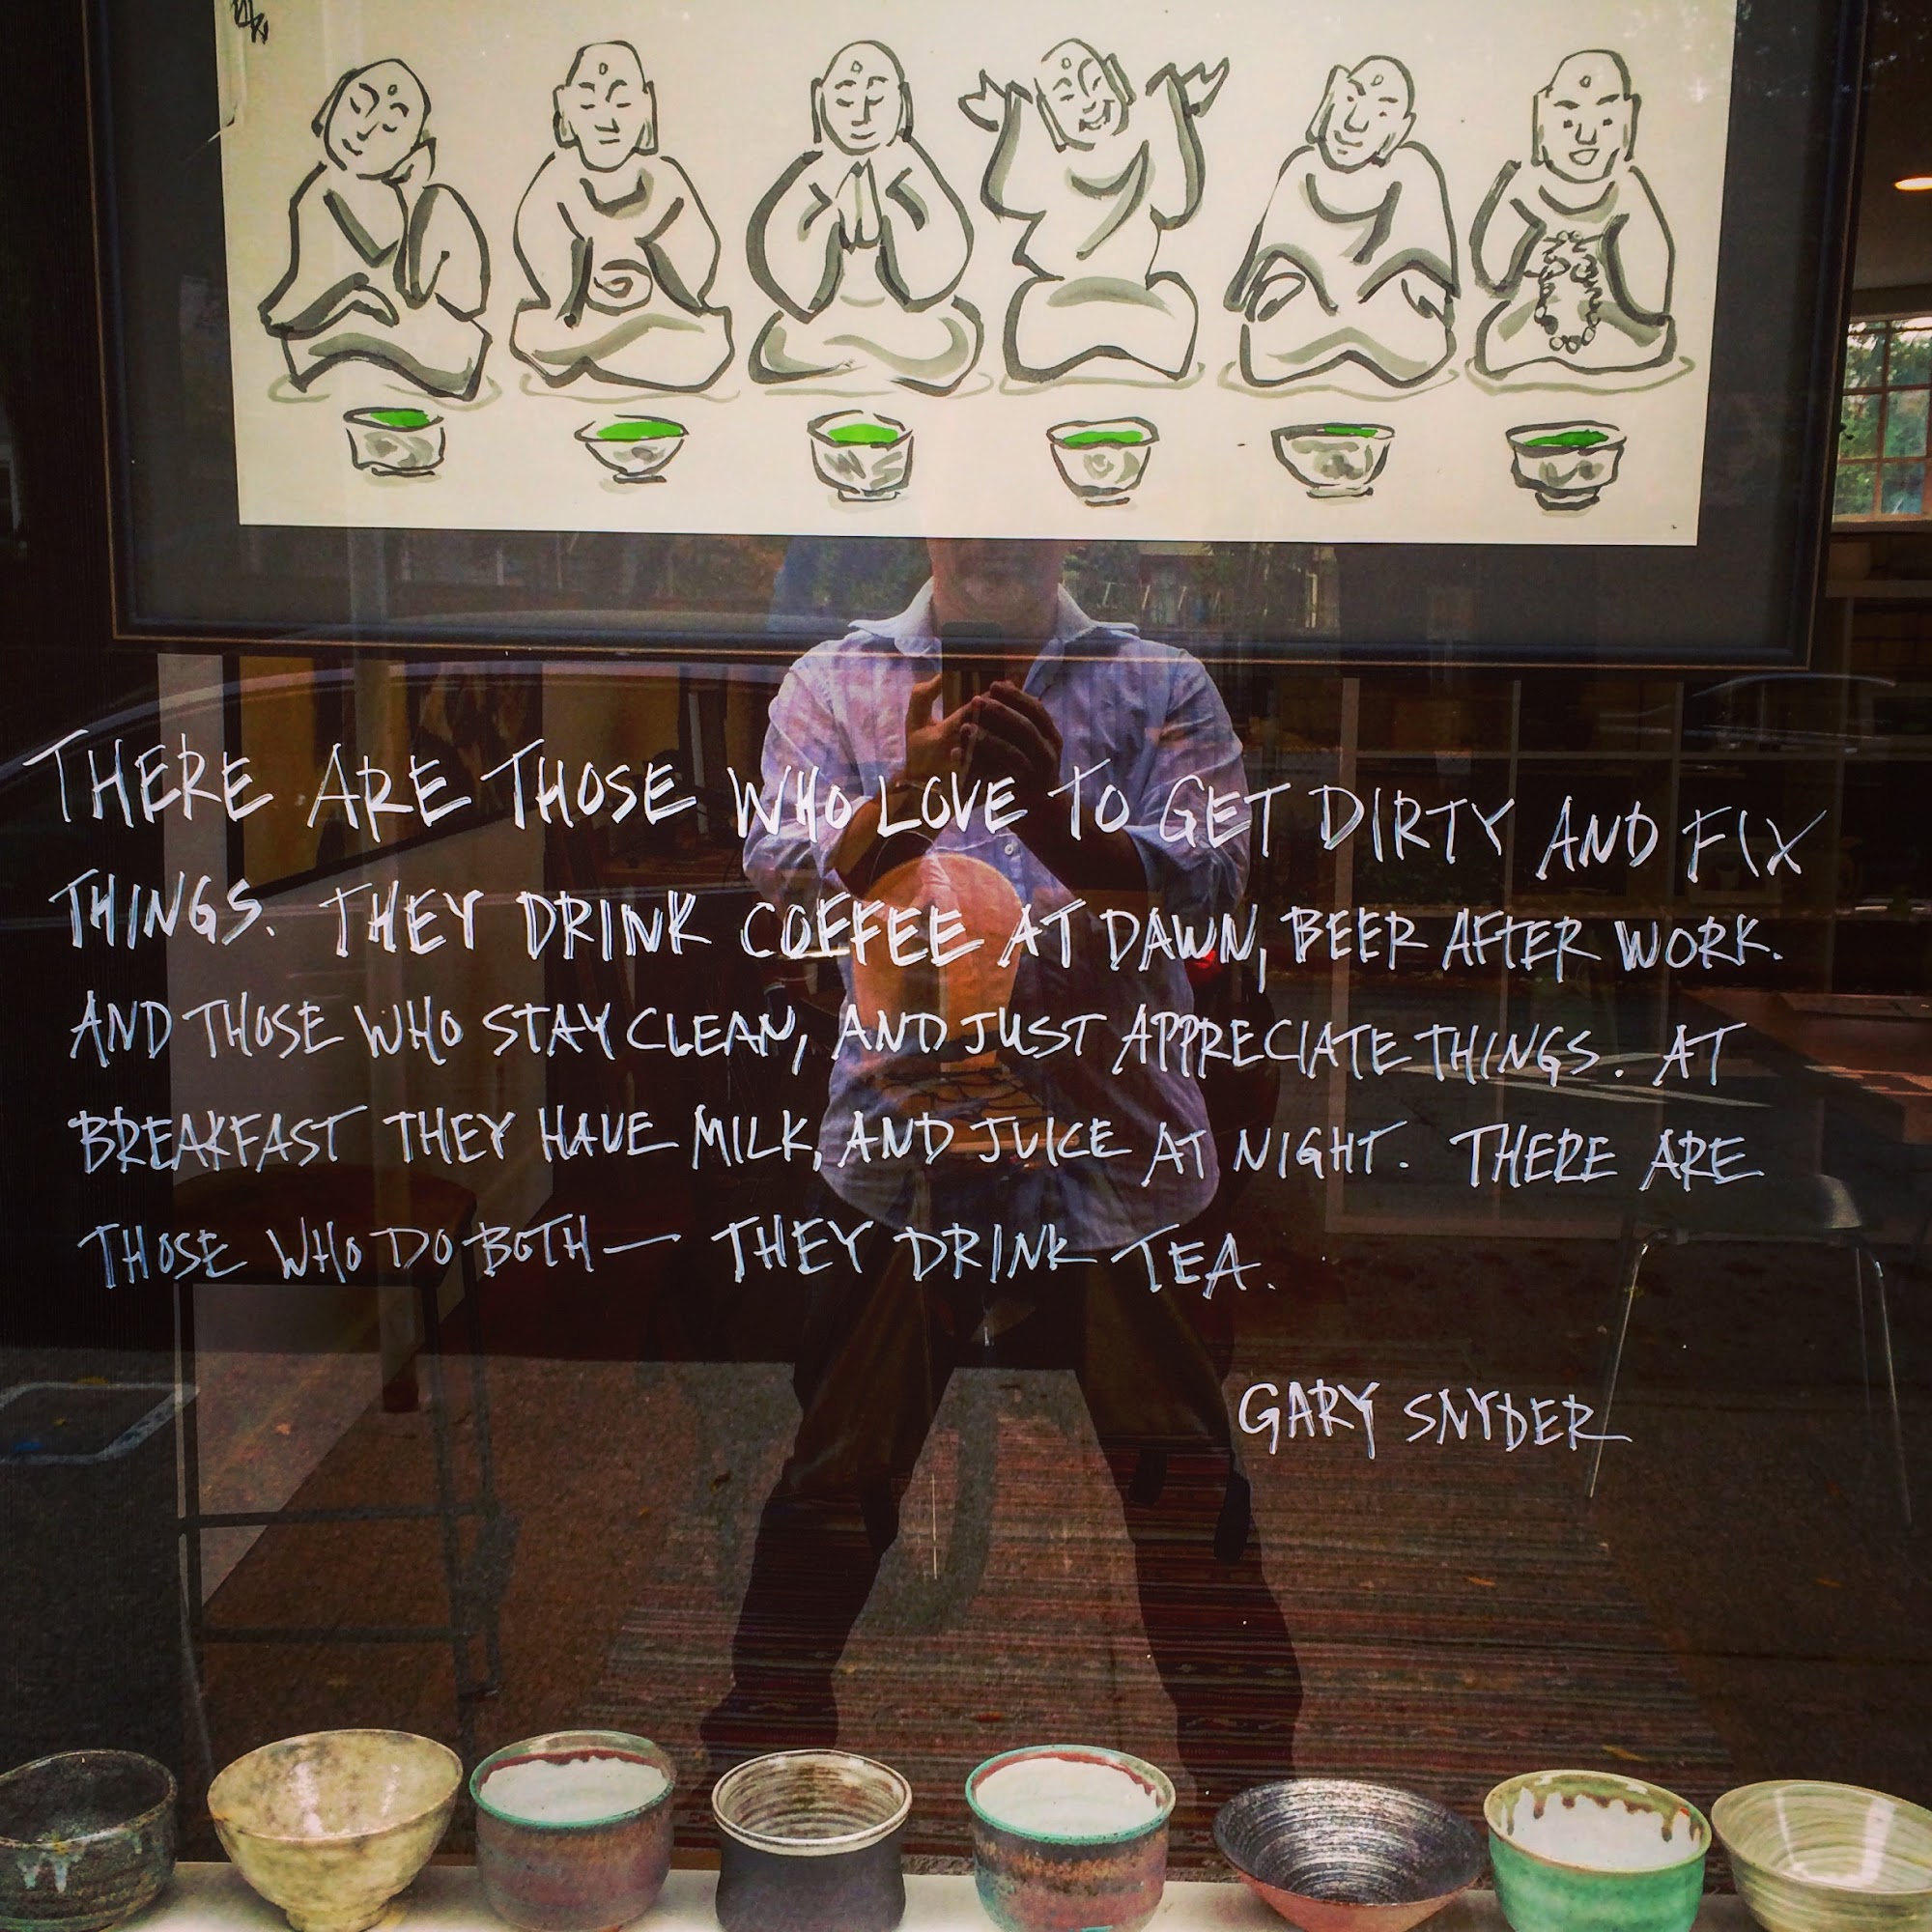 THERE ARE THOSE WHO LOVE TO GET DIRTY AND FIX
THINGS. THEY DRINK COFFEE AT DAWN, BEER AFTER WORK.
AND THOSE WHO STAY CLEAN, AND JUST APPRECIATE THINGS. AT
BREAKFAST THEY HAVE MILK, AND JUICE AT NIGHT. THERE ARE
THOSE WHO DO BOTH— THEY DRINK TEA.
GARY SNYDER